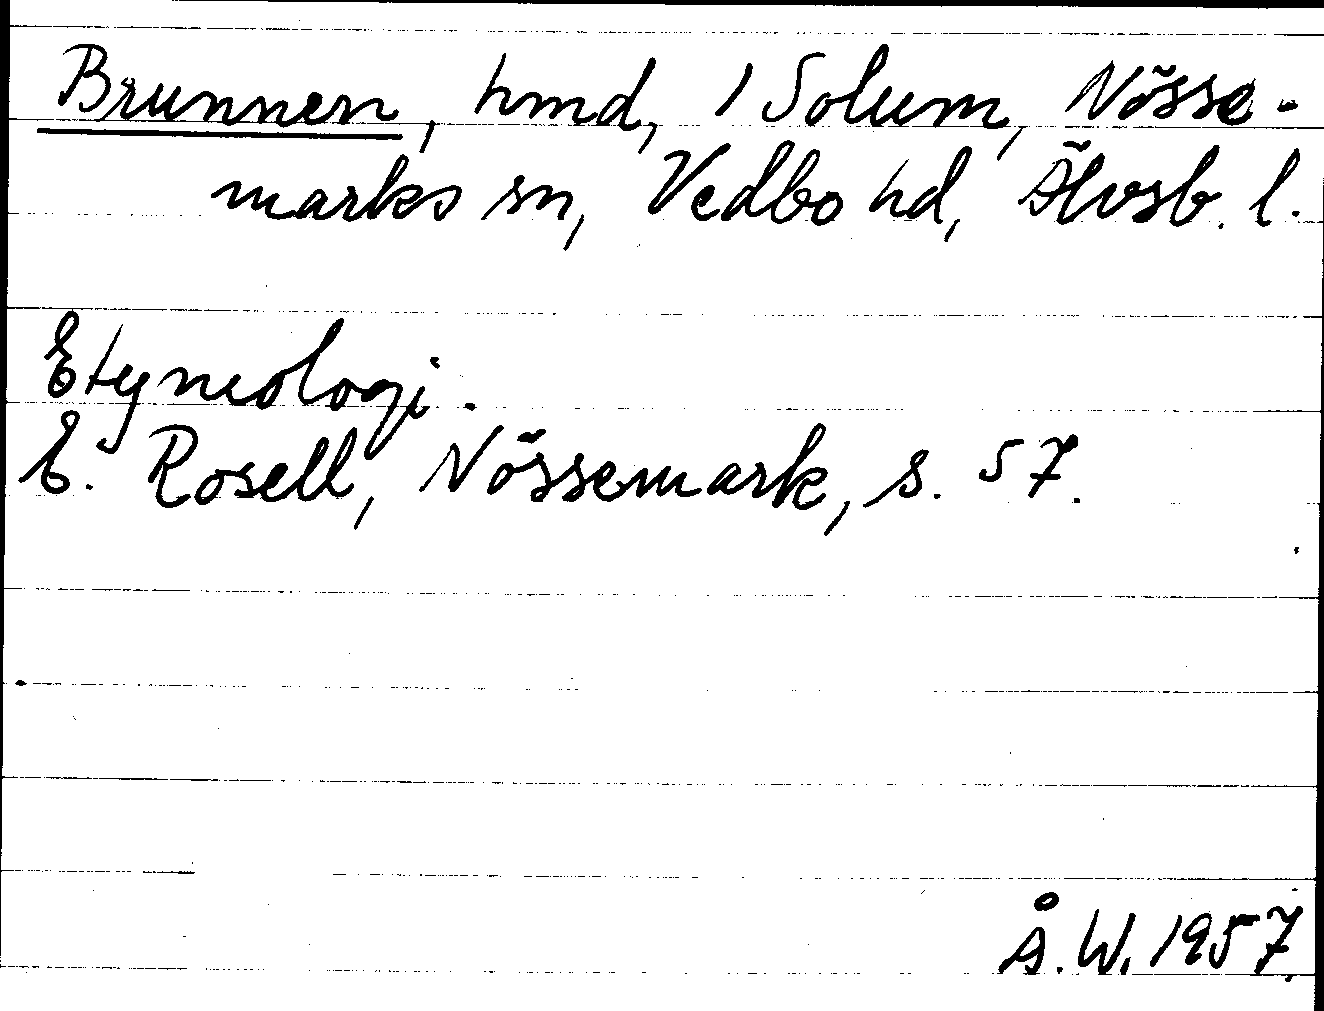 Brunnen, hmd, 1 Solum, Nösse-
marks sn, Vedbo hd, Älvsb. l.
Etymologi.
E. Rosell, Nössemark, s. 57.
Å.W. 1957.